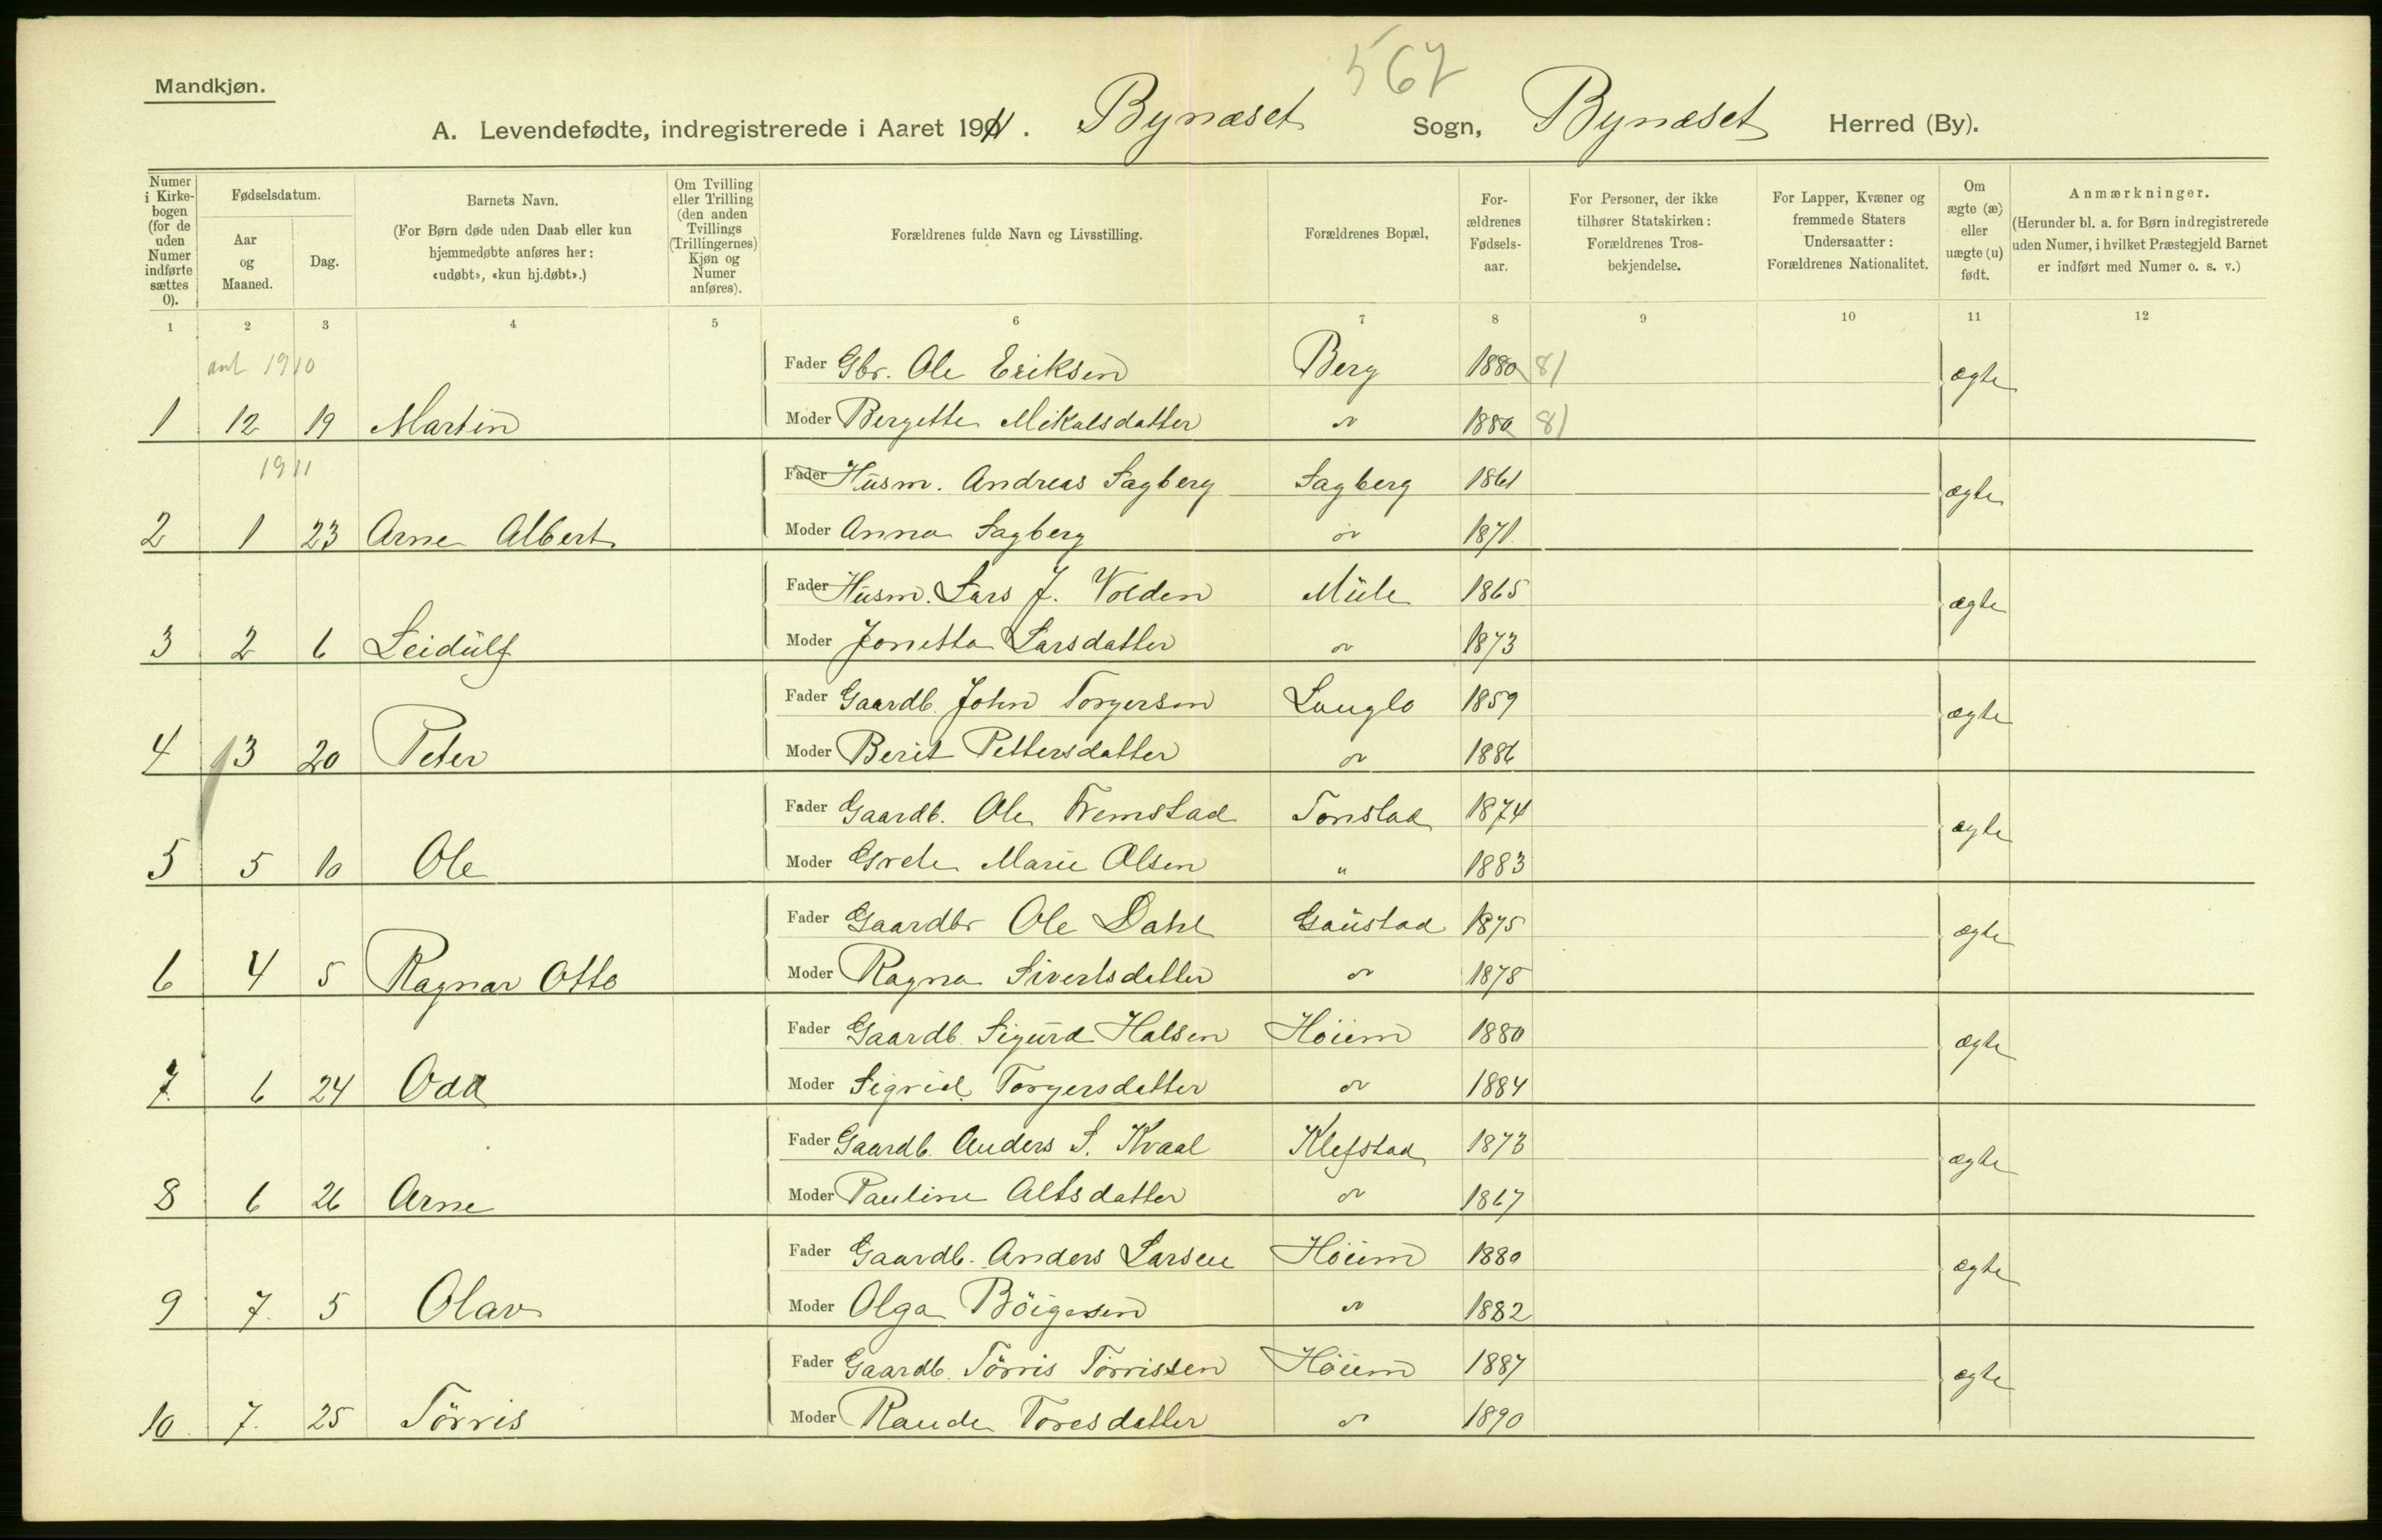 567
Mandkjøn.
A. Levendefødte, indregistrerede i Aaret 1911. Bynæset Sogn, Bynæset Herred (By).
Numer i Kirkebogen (for de uden Numer indførte sættes 0).
Fødselsdatum.
Aar og Maaned.
Dag.
Barnets Navn.
(For Børn døde uden Daab eller kun hjemmedøbte anføres her: «udøbt», «kun hj.døbt».)
Om Tvilling eller Trilling (den anden Tvillings (Trillingernes) Kjøn og Numer anføres).
Forældrenes fulde Navn og Livsstilling.
Forældrenes Bopæl,
For-ældrenes Fødsels-aar.
For Personer, der ikke tilhører Statskirken: Forældrenes Tros-bekjendelse.
For Lapper, Kvæner og fremmede Staters Undersaatter: Forældrenes Nationalitet.
Om ægte (æ) eller uægte (u) født.
Anmærkninger.
(Herunder bl. a. for Børn indregistrerede uden Numer, i hvilket Præstegjeld Barnet er indført med Numer o. s. v.)
1 2 3 4 5 6 7 8 9 10 11 12
ant 1910
Fader Gbr. Ole Eriksen Berg 1880 81 ægte
1 12 19 Martin Moder Bergette Mikalsdatter " 1880 81
1911
Fader Husm. Andreas Sagberg Sagberg 1861 ægte
2 1 23 Arne Albert Moder Anna Sagberg " 1871
Fader Husm. Lars J. Volden Mule 1865 ægte
3 2 6 Leidulf Moder Jonetta Larsdatter " 1873
Fader Gaardb. John Torgersen Langlo 1859 ægte
4 3 20 Peter Moder Berit Pettersdatter " 1886
Fader Gaardb. Ole Fremstad Tonstad 1874 ægte
5 5 10 Ole Moder Grete Marie Olsen " 1883
Fader Gaardbr Ole Dahl Gaustad 1875 ægte
6 4 5 Ragnar Otto Moder Ragna Sivertsdatter " 1878
Fader Gaardb. Sigurd Halsen Höiem 1880 ægte
7. 6 24 Odd Moder Sigrid Torgersdatter " 1884
Fader Gaardb. Anders S. Kvaal Klefstad 1873 ægte
8 6 26 Arne Moder Pauline Altsdatter " 1867
Fader Gaardb. Anders Larsen Höiem 1880 ægte
9 7. 5 Olav Moder Olga Böigesen " 1882
Fader Gaardb. Törris Törrissen Höiem 1887 ægte
10 7. 25 Törris Moder Toresdatter " 1890